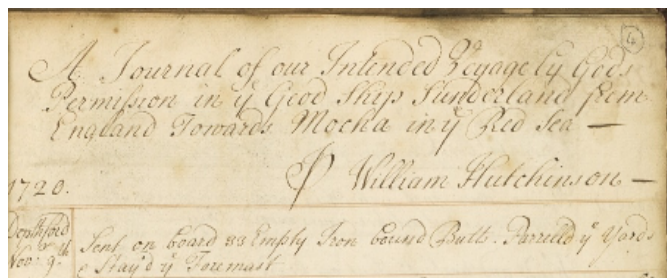 4
A Journal of our Intended Voyage by Gods
Permission in ye Good Ship Sunderland from
England Towards Mocha in ye Red Sea —
P William Hutchinson —
1720.
Deptford
Nov: 9th
Sent on board 33 Empty Iron bound Butts. Parreld ye Yards
& Stay'd ye Foremast